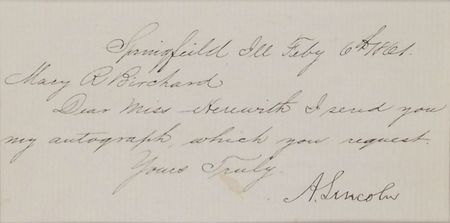 Springfeild Ill Feby 6th 1861.
Mary R Birchard
Dear Miss Herewith I send you
my autograph, which you request.
Yours Truly.
A. Lincoln